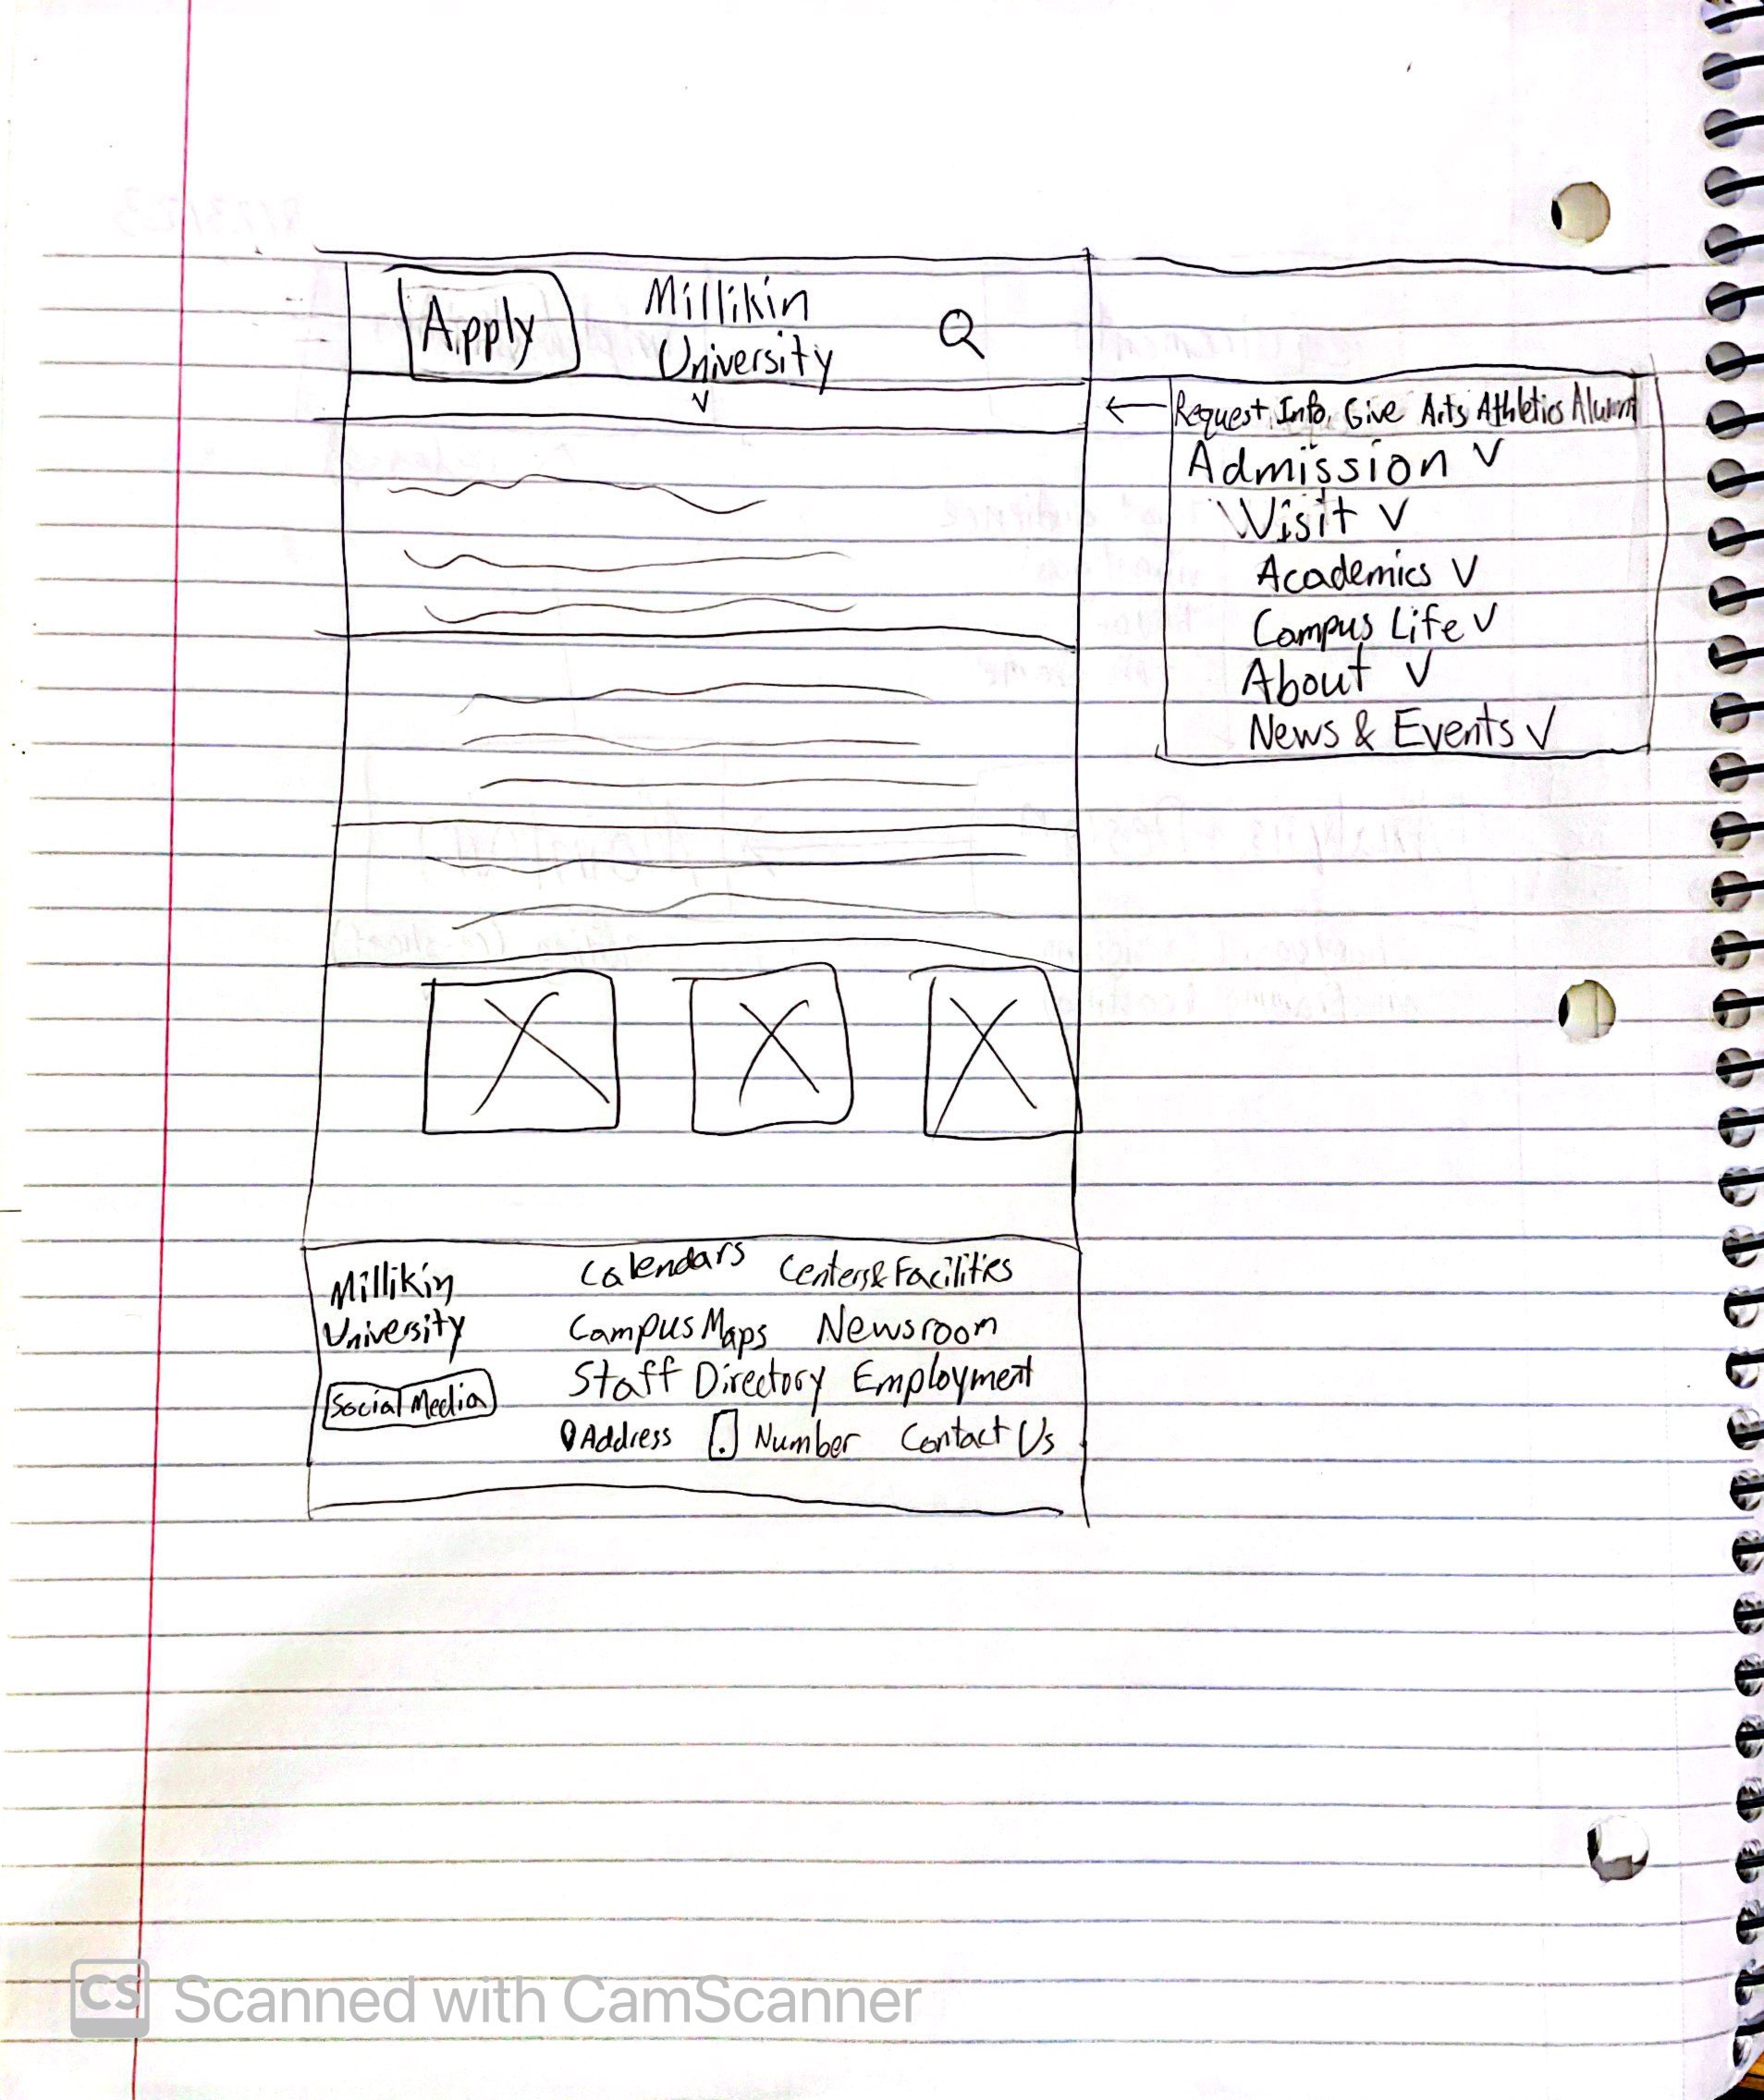 Apply
Millikin
University
v
Request Info. Give Arts Athletics Alumni
Admission v
Visit v
Academics v
Campus Life v
About v
News & Events v
Millikin
University
Social Media
Calendars Centers & Facilities
Campus Maps Newsroom
Staff Directory Employment
Address Number Contact Us
CS Scanned with CamScanner